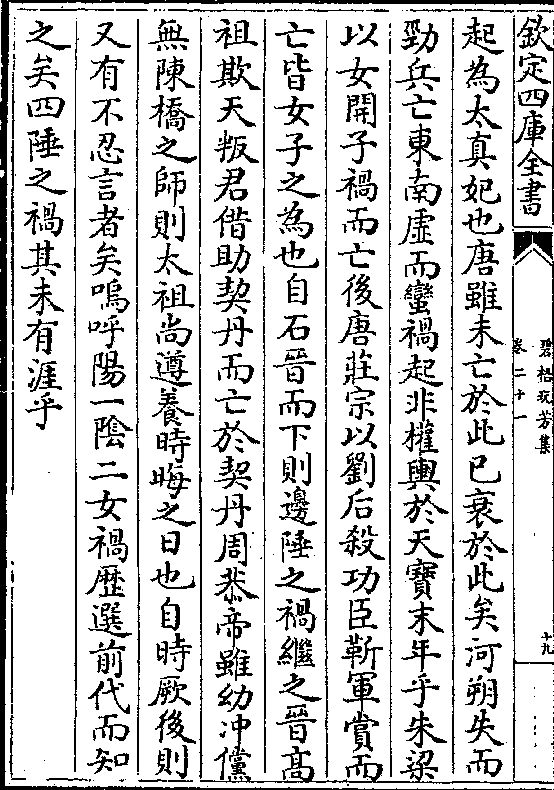 欽定四庫全書
碧梧玩芳集
卷二十一
十九
起為太真妃也唐雖未亡於此已衰於此矣河朔失而
勁兵亡東南虛而蠻禍起非權輿於天寶末年乎朱梁
以女開子禍而亡後唐莊宗以劉后殺功臣靳軍賞而
亡皆女子之為也自石晉而下則邊陲之禍繼之晉高
祖欺天叛君偕助契丹而亡於契丹周恭帝雖幼冲儻
無陳橋之師則太祖尚遵養時晦之日也自時厥後則
又有不忍言者矣嗚呼陽一陰二女禍歴選前代而知
之矣四陲之禍其未有涯乎